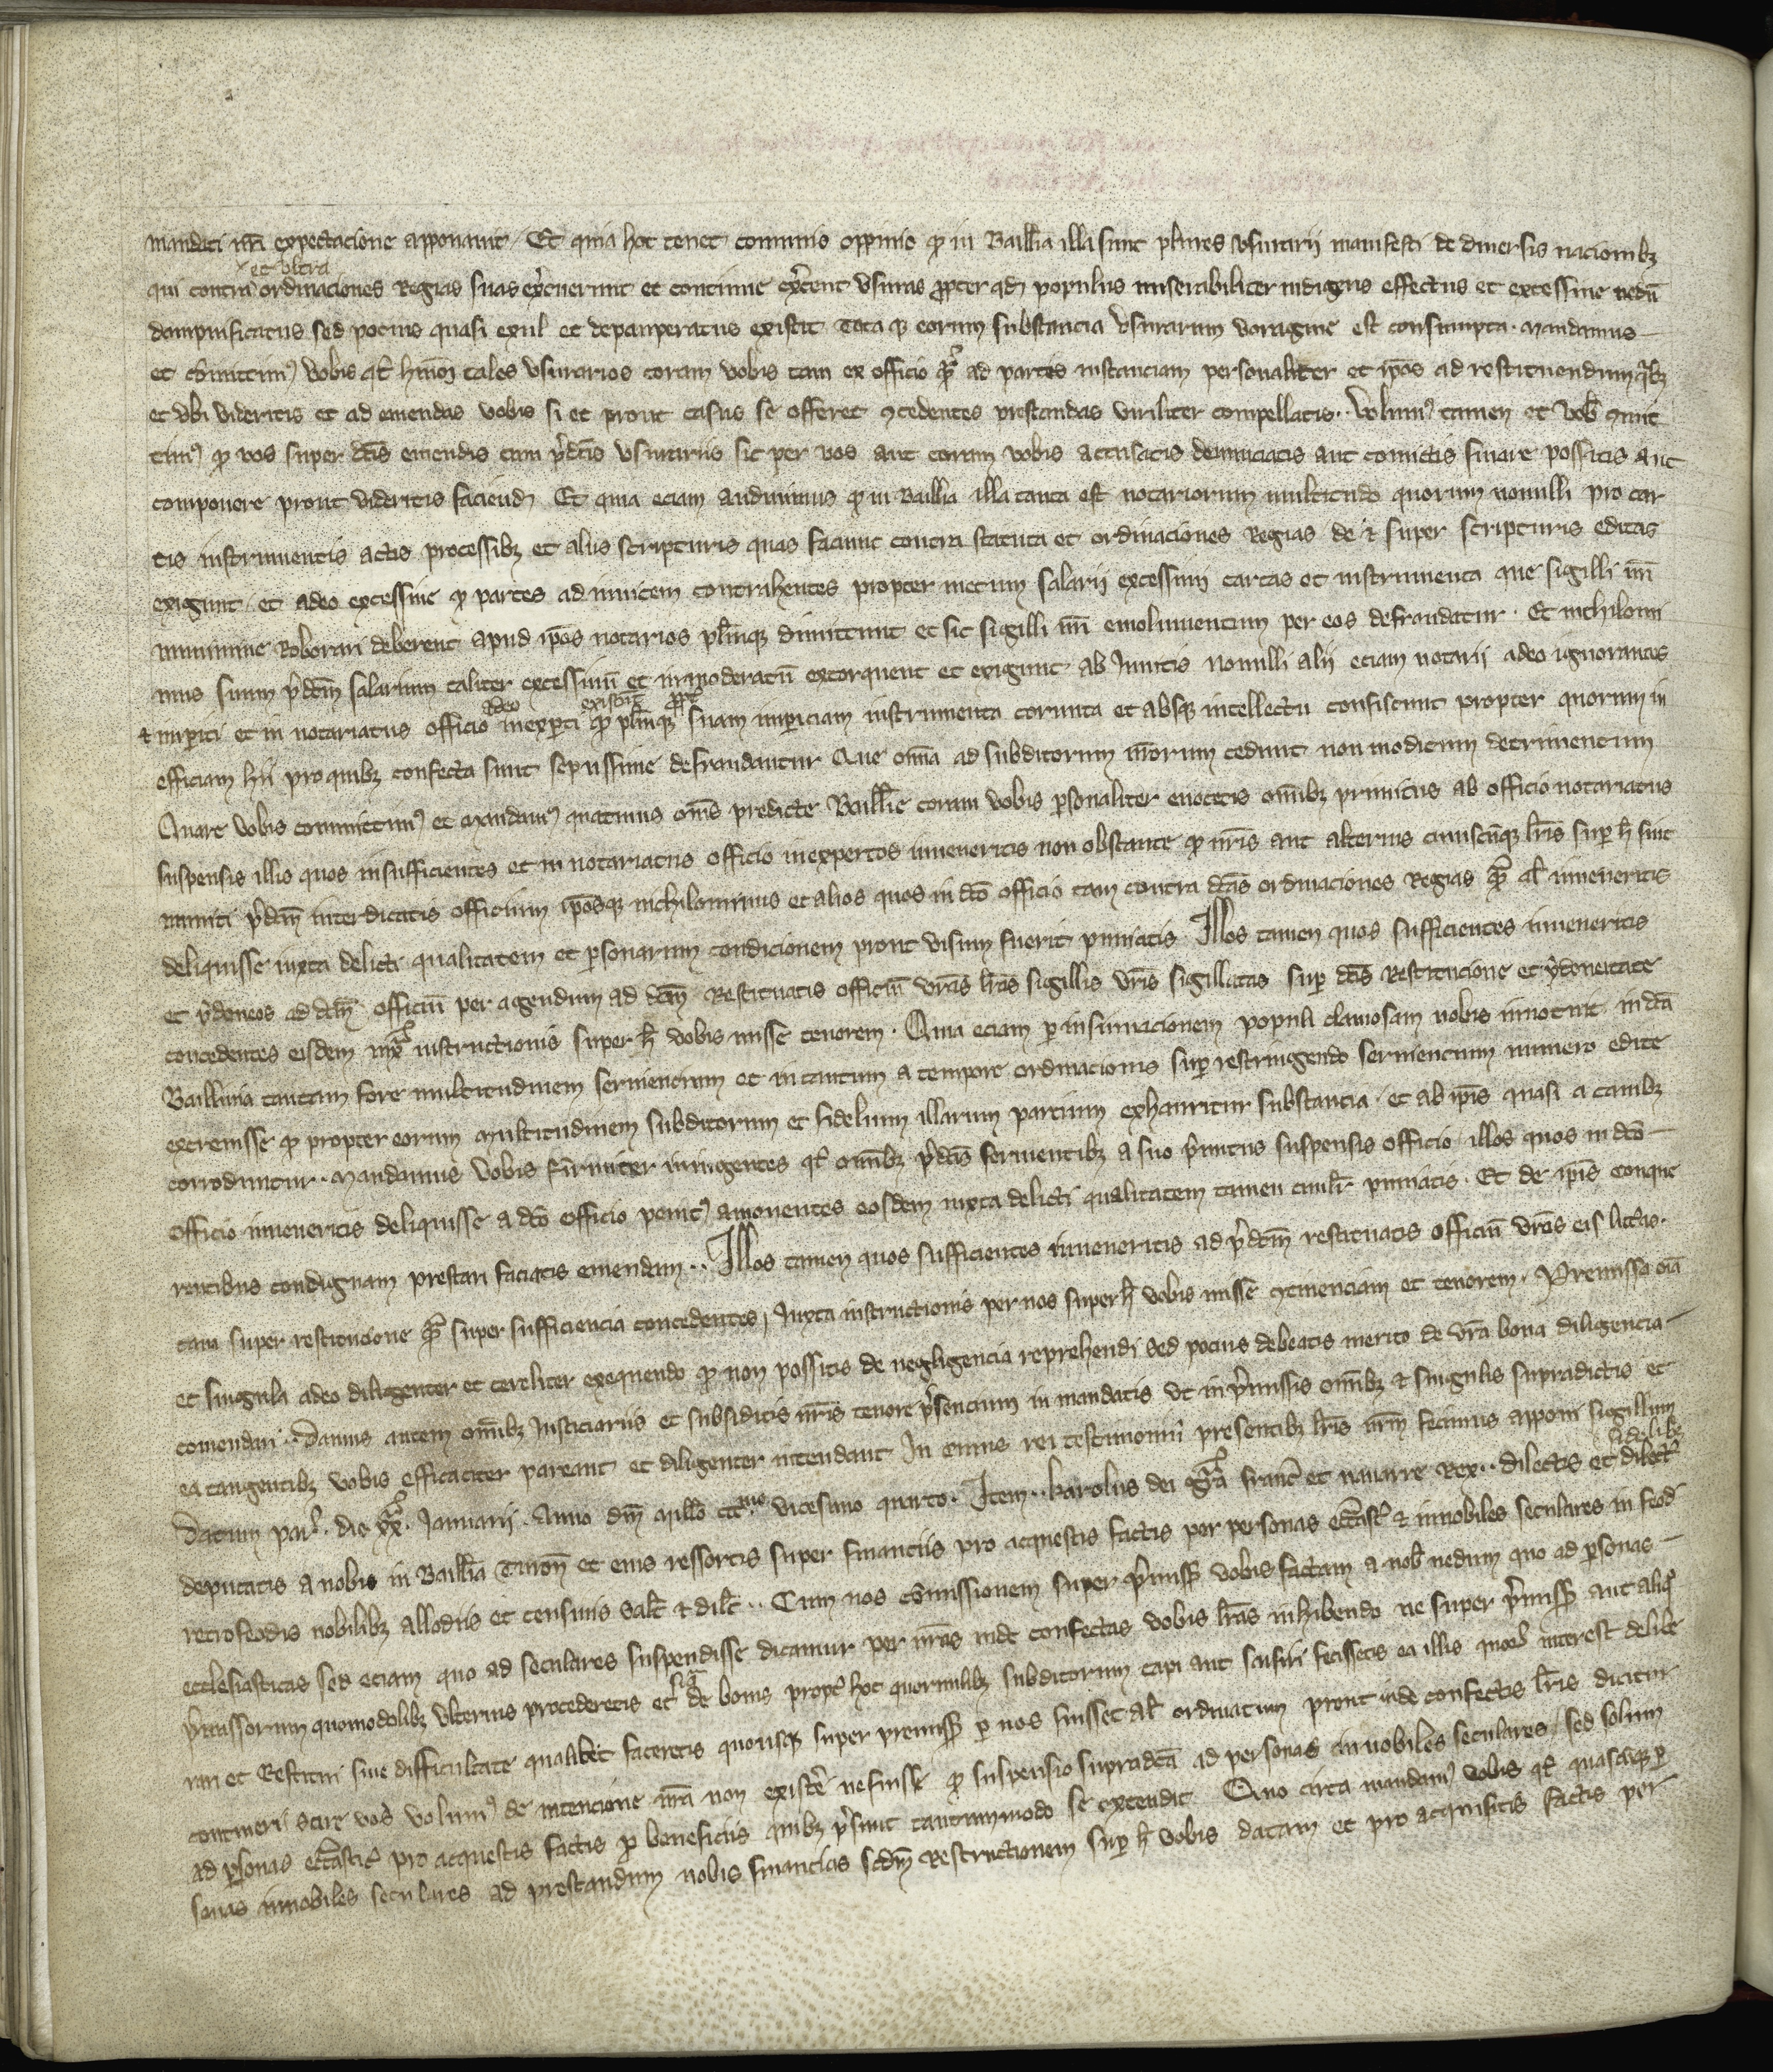 mandati nr̃i expectacione apponant / Et quia hoc tenet communis oppinio ꝙ in Baillia illa sunt plures vsurarii manifesti de diuersis nacionibꝫ
et vltra
qui contra ordinaciones Regias suas ex̾cuerunt et continue ex̾cent vsuras ꝓpter qd̃ populus miserabiliter indigens effectus et excessiue nedũ
dampnificatus sed pocius quasi exul et depauperatus existit Tota qꝫ eorum substancia vsurarum voragine est consumpta . Mandamus
et cõmittimꝰ vobis qt̃ hmõi tales vsurarios coram vobis tam ex officio qͣꝫ ad partis instanciam personaliter et ip̃os ad restituendum qͥbꝫ
et vbi videritis et ad emendas vobis si et prout casus se offeret ꝯcedentes prestandas viriliter compellatis . . Volumꝰ tamen et vob̃ ꝯmit
timꝰ ꝙ vos super dc̃is emendis cum p̃dc̃is vsurariis sic per vos aut coram vobis accusatis denunciatis aut conuictis finare possitis aut
componere prout videritis faciend̃ Et quia eciam audiuimus ꝙ in Baillia illa tanta est notariorum multitudo quorum nonulli pro car
tis instrumentis actis processibꝫ et aliis scripturis quas faciunt contra statuta et ordinaciones Regias de ⁊ super scripturis editas
exigunt / et adeo excessiue ꝙ partes ad inuicem contrahentes propter metum salarii excessiui cartas et instrumenta que sigilli nr̃i
munimine Roborari deberent apud ip̃os notarios pler̃unqꝫ dimittunt et sic sigilli nr̃i emolumentum per eos defraudatur . Et nichilomi
nus suum p̃dc̃m salarium taliter excessiuũ et inmoderatũ extorquent et exigunt ab Inuitis nonulli alii eciam notarii adeo ignorantes
adeo existũt ꝓpt̾
⁊ imꝑiti et in notariatus officio inexꝑti ꝙ plerũqꝫ suam imꝑiciam instrumenta corrupta et absqꝫ intellectu conficiunt propter quorum in
efficiam hii pro quibꝫ confecta sunt sepissime defraudantur Que om̃ia ad subditorum nr̃orum cedunt non modicum detrimentum
Quare vobis committimꝰ et Mandamꝰ quatinus om̃s predicte Baillie coram vobis ꝑsonaliter euocetis om̃ibꝫ primitus ab officio notariatus
suspensis illis quos insufficientes et in notariatus officio inexpertos inueneritis non obstante ꝙ nr̃is aut alterius cuiuscũqꝫ lr̃is suꝑ h̃ sint
muniti p̃dc̃m interdicatis officium ip̃osqꝫ nichilominus et alios quos in dc̃o officio tam contra dc̃as ordinaciones Regias qͣꝫ al̃ inueneritis
deliquisse iuxta delicti qualitatem et ꝑsonarum condicionem prout visum fuerit puniatis . Illos tamen quos sufficientes inueneritis
et ydoneos ad dc̃m officiũ per agendum ad dc̃m Restituatis officiũ vr̃as lr̃as sigillis vr̃is sigillatas suꝑ dc̃is Restitucione et ydoneitate
concedentes eisdem iuxͣ instructionis super h̃ vobis misse tenorem . Quia eciam ꝑ insinuacionem populi clamosam nobis innotuit in dc̃a
Baillivia tantam fore multitudinem seruientum et in tantum a tempore ordinacionis suꝑ restringendo seruientum numero edite
excreuisse ꝙ propter eorum multitudinem subditorum et fidelium illarum partium exhauritur substancia . et ab ip̃is quasi a canibꝫ
corroduntur . . Mandamus vobis firmiter iniungentes qt̃ om̃ibꝫ p̃dc̃is seruientibꝫ a suo p̃mitus suspensis officio / illos quos in dc̃o
officio inueneritis deliquisse a dc̃o officio penitꝰ amouentes eosdem iuxta delicti qualitatem tamen ciuilr̃ puniatis . Et de ip̃is conque
rentibus condignam prestari faciatis emendam . . Illos tamen quos sufficientes inueneritis ad p̃dc̃m restituatis officiũ vr̃as eis litt̾as .
tam super restitucione qͣꝫ super sufficiencia concedentes / Iuxta instructionis per nos super h̃ vobis misse ꝯtinenciam et tenorem . Premissa oĩa
et singula adeo diligenter et celeriter exequendo ꝙ non possitis de negligencia reprehendi sed pocius debeatis merito de vr̃a bona diligencia
comendari . . Damus autem om̃ibꝫ Iusticiariis et subsiditis nr̃is tenore p̃sencium in mandatis vt in p̃missis om̃ibꝫ ⁊ singulis supradictis et
ea tangentibꝫ vobis efficaciter pareant et diligenter intendant In cuius rei testimoniũ presentibꝫ lr̃is nr̃m fecimus apponi sigillum
fidelibꝫ
Datum par̃ . die xxͣ . Ianuarii . Anno dñi Mill̃o ccc.mo vicesimo quarto . Item . . karolus dei gr̃a franc̃ et nauarre Rex . . dilectis et dilect̃
deputatis a nobis in Baill̃ia Turon̄ et eius ressortis super financiis pro acquestis factis per personas ecc̃asts̃ ⁊ innobiles seculares in feod̃
retrofeodis nobilibꝫ allodiis et censiuis salt̃ ⁊ dil̃t . . Cum nos cõmissionem super p̃miss̃ vobis factam a nob̃ nedum quo ad ꝑsonas
ecclesiasticas sed eciam quo ad seculares suspendisse dicamur per nr̃as inde confectas vobis lr̃as inhibendo ne super p̃miss̃ aut aliqͦ
p̃missorum quomodolibꝫ vlterius procederetis et siqͣ de bonis propt̾ hoc quorumlibꝫ subditorum capi aut saisiri fecissetis ea illis quoꝝ interest delibe
rari et Restitui sine difficultate qualibet faceretis quousqꝫ super premiss̃ ꝑ nos fuisset al̃ ordinatum prout inde confectis lr̃is dicitur
contineri scire vos volumꝰ de intencione nr̃a non existe̾ ne fuisse ꝙ suspensio supradc̃a ad personas innobiles seculares / sed solum
ad ꝑsonas ecc̃astic̃ pro acquestis factis ꝑ beneficiis quibꝫ p̃sunt tantummodo se extendit Quo circa mandamꝰ vobis qt̃ quascũqꝫ ꝑ
sonas innobiles seculares ad prestandum nobis financias scd̃m Restructionem suꝑ h̃ vobis datam et pro acquisitis factis per